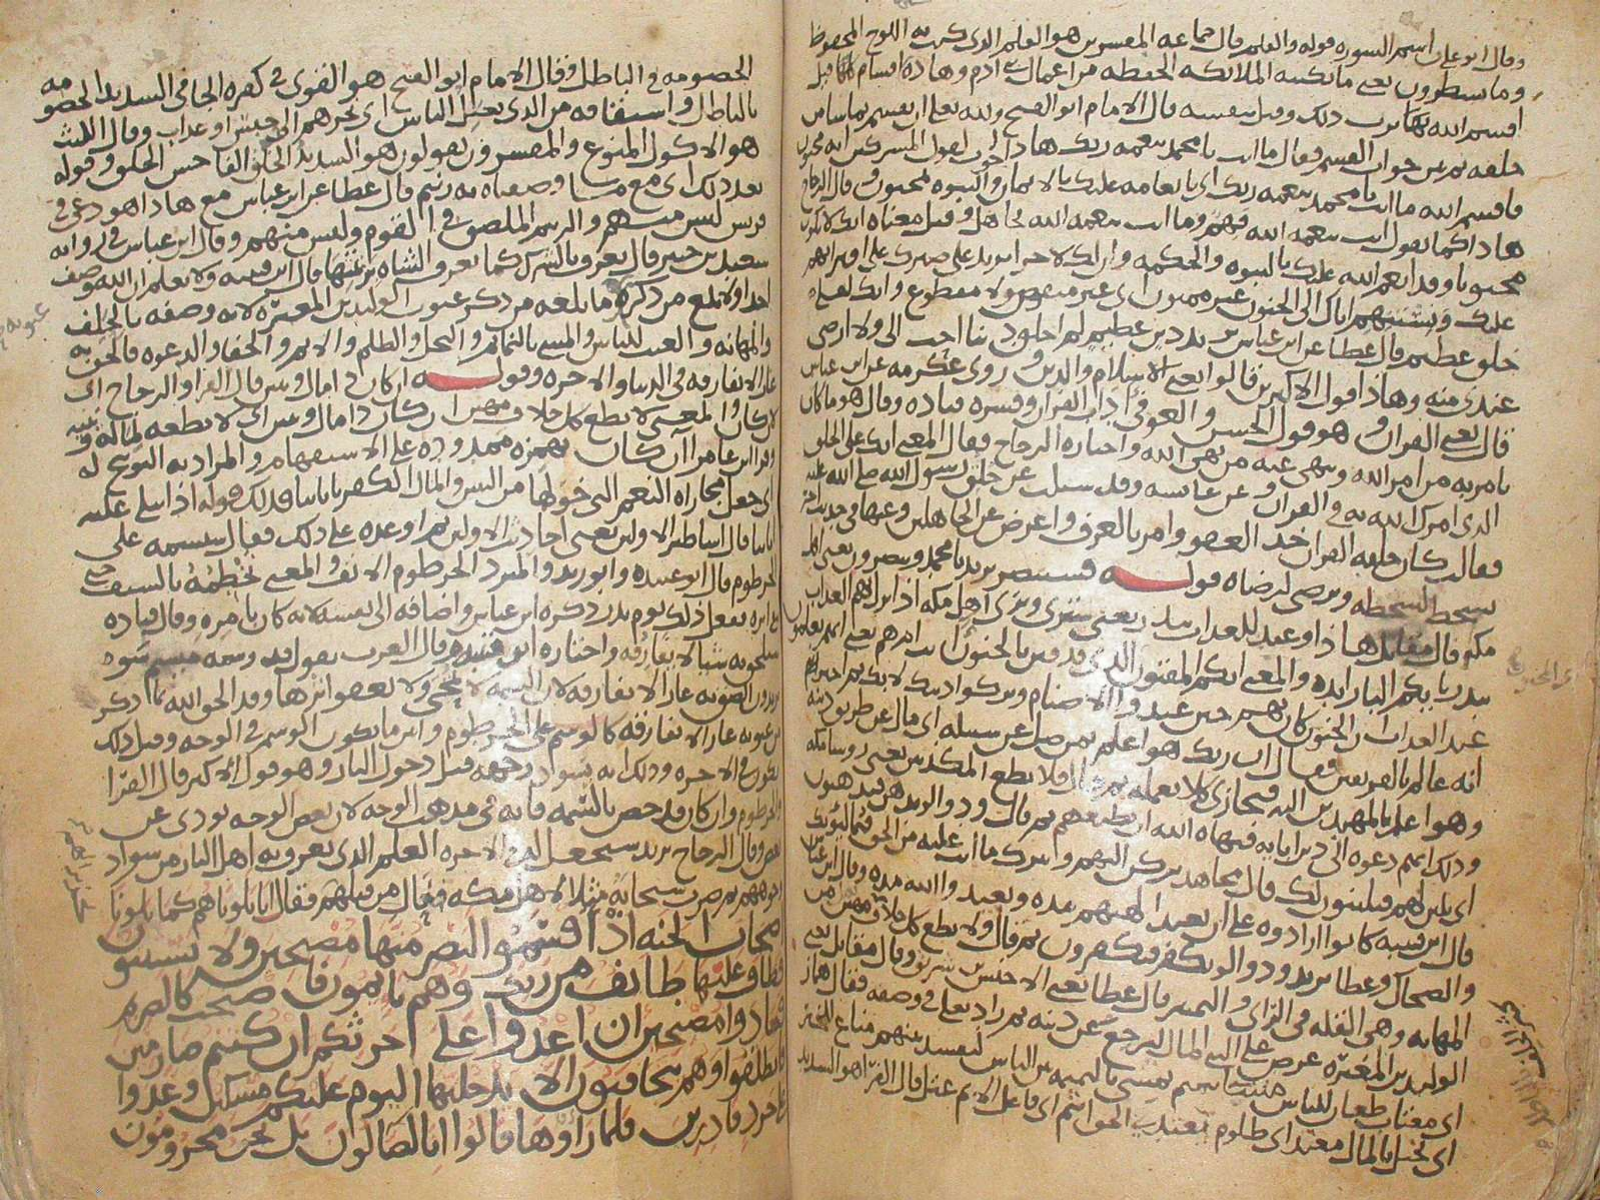 وقال ابو علي اسم السوره قوله والقلم قال جماعه المفسرين هو القلم الذي كتب به اللوح المحفوظ
وما يسطرون يعني ما تكتبه الملائكه الحفظه من اعمال بني ادم وهاذه اقسام
اقسم الله بها ذلك وقيل بنفسه قال الامام ابو الفتح ولله تعلى ان يقسم بما شا من
خلقه ثم بين جواب القسم فقال ما انت يا محمد بنعمه ربك هاذا جواب لقول المشركين انه مجنون
فاقسم الله ما انت يا محمد بنعمه ربك اي بانعامه عليك بالايمان والنبوه بمجنون وقال الزجاج
هاذا كما تقول انت بنعمه الله فهم وما انت بنعمه الله بجاهل وقيل معناه انك لا تكون
مجنونا وقد انعم الله عليك بالنبوه والحكمه وان لك لاجرا يريد على صبرك على افترائهم
عليك ونسبتهم اياك الى الجنون غير ممنون اي غير منقوص ولا مقطوع وانك لعلى
خلق عظيم قال عطا عن ابن عباس يريد دين عظيم لم اخلق دينا احب الي ولا ارضى
عندي منه وهاذا قول الاكثرين قالوا يعني الاسلام والدين وروى عكرمه عن ابن عباس
قال يعني القران وهو قول الحسن والعوفي اداب القران وفسره قتاده وقال هو ما كان
يامر به من امر الله وينهى عنه من نهي الله واختاره الزجاج فقال المعنى انك على الخلق
الذي امرك الله به في القران وعن عائشه وقد سئلت عن خلق رسول الله صلى الله عليه
فقالت كان خلقه القران خذ العفو وامر بالعرف واعرض عن الجاهلين وعنها في حديث اخر
يسخط لسخطه ويرضى لرضاه قوله فستبصر يريد يا محمد ويبصرون يعني اهل
مكه قال مقاتل هاذا وعيد للعذاب ببدر يعني سترى ويرى اهل مكه اذا نزل بهم العذاب
ببدر بايكم البا زايده والمعنى ايكم المفتون الذي قد فتن بالجنون انت ام هم يعني انهم يعلمون
عند العذاب ان الجنون كان بهم حين عبدوا الاصنام وتركوا دينك لا بك ثم اخبر
انه عالم بالفريقين فقال ان ربك هو اعلم بمن ضل عن سبيله اي مال عن طريق دينه
وهو اعلم بالمهتدين اليه فيجازي كلا بعمله ثم قال فلا تطع المكذبين يعني روسا مكه
وذلك انهم دعوه الى دين ابايه فنهاه الله ان يطيعهم ثم قال ودوا لو تدهن فيدهنون
اي تلين لهم فيلينون لك قال مجاهد تركن اليهم وتترك ما انت عليه من الحق فيمالئونك
قال ابن قتيبه كانوا ارادوه على ان يعبد الهتهم مده ويعبدوا الله مده وقال ابن عباس
والضحاك وعطا يريد ودوا لو تكفر فيكفرون ثم قال ولا تطع كل حلاف مهين من
المهانه وهي القله في الراي والتمييز قال عطا يعني الاخنس بن شريق وقال مقاتل يعني
الوليد بن المغيره عرض على النبي المال ليرجع عن دينه ثم زاد تعلى في وصفه فقال هماز
اي مغتاب طعان للناس مشا بنميم يمشي بالنميمه بين الناس ليفسد بينهم مناع للخير
اي بخيل بالمال معتد اي ظلوم يعتدي الحق اثيم اي فاعل الاثم عتل قال الفرا هو الشديد
الخصومه في الباطل وقال الامام ابو الفتح هو القوي في كفره الجافي الشديد الخصومه
بالباطل واشتقاقه من الذي يعتل الناس اي يجرهم الى حبس او عذاب وقال الليث
هو الاكول المنوع والمفسرون يقولون هو الشديد الخلق الفاحش الخلق وقوله
بعد ذلك اي مع ما وصفناه به زنيم قال عطا عن ابن عباس مع هاذا هو دعي في
قريش ليس منهم والزنيم الملصق في القوم وليس منهم وقال ابن عباس في روايه
سعيد بن جبير قال يعرف بالشر كما تعرف الشاه بزنمتها قال ابن قتيبه ولا نعلم ان الله وصف
احدا ولا بلغ من ذكره ما بلغه من ذكر عيوب الوليد بن المغيره لانه وصفه بالحلف
والمهانه والعيب للناس والمشي بالنمائم والبخل والظلم والاثم والجفا والدعوه فالحق به
عارا لا يفارقه في الدنيا والاخره وقوله ان كان ذا مال وبنين قال الفرا والزجاج اي
لان كان والمعنى لا تطع كل حلاف مهين ان كان ذا مال وبنين اي لا تطعه لماله وبنيه
وقرا ابن عامر اان كان بهمزه ممدوده على الاستفهام والمراد به التوبيخ له
اي جعل مجازاه النعم التي خولها من البنين والمال الكفر باياتنا فذلك قوله اذا تتلى عليه
اياتنا قال اساطير الاولين يعني احاديث الاولين ثم اوعده على ذلك فقال سنسمه على
الخرطوم قال ابو عبيده وابو زيد والمبرد الخرطوم الانف والمعنى نخطمه بالسيف
ففعل ذلك يوم بدر ذكره ابن عباس واضافه الى نفسه لانه كان بامره وقال قتاده
سنلحق به شيا لا يفارقه واختاره ابن قتيبه وقال العرب تقول قد وسمه ميسم سوه
يريدون الصق به عارا لا يفارقه لان السمه لا تنمحي ولا يعفو اثرها وقد الحق الله بما ذكر
من عيوبه عارا لا يفارقه كالوسم على الخرطوم وابين ما يكون الوسم في الوجه وقيل ذلك
يكون في الاخره وذلك انه يسود وجهه قبل دخول النار وهو قول الاكثر قال الفرا
الخرطوم وان كان قد خص بالسمه فانه في مذهب الوجه لان بعض الوجه يودي عن
بعض وقال الزجاج يريد سنجعل له في الاخره العلم الذي يعرف به اهل النار من سواد
وجوههم ثم ضرب سبحانه مثلا لاهل مكه فقال انا بلوناهم كما بلونا
اصحاب الجنه اذ اقسموا ليصرمنها مصبحين ولا يستثنون
فطاف عليها طائف من ربك وهم نائمون فاصبحت كالصريم
فتنادوا مصبحين ان اغدوا على حرثكم ان كنتم صارمين
فانطلقوا وهم يتخافتون الا يدخلنها اليوم عليكم مسكين وغدوا
على حرد قادرين فلما راوها قالوا انا لضالون بل نحن محرومون